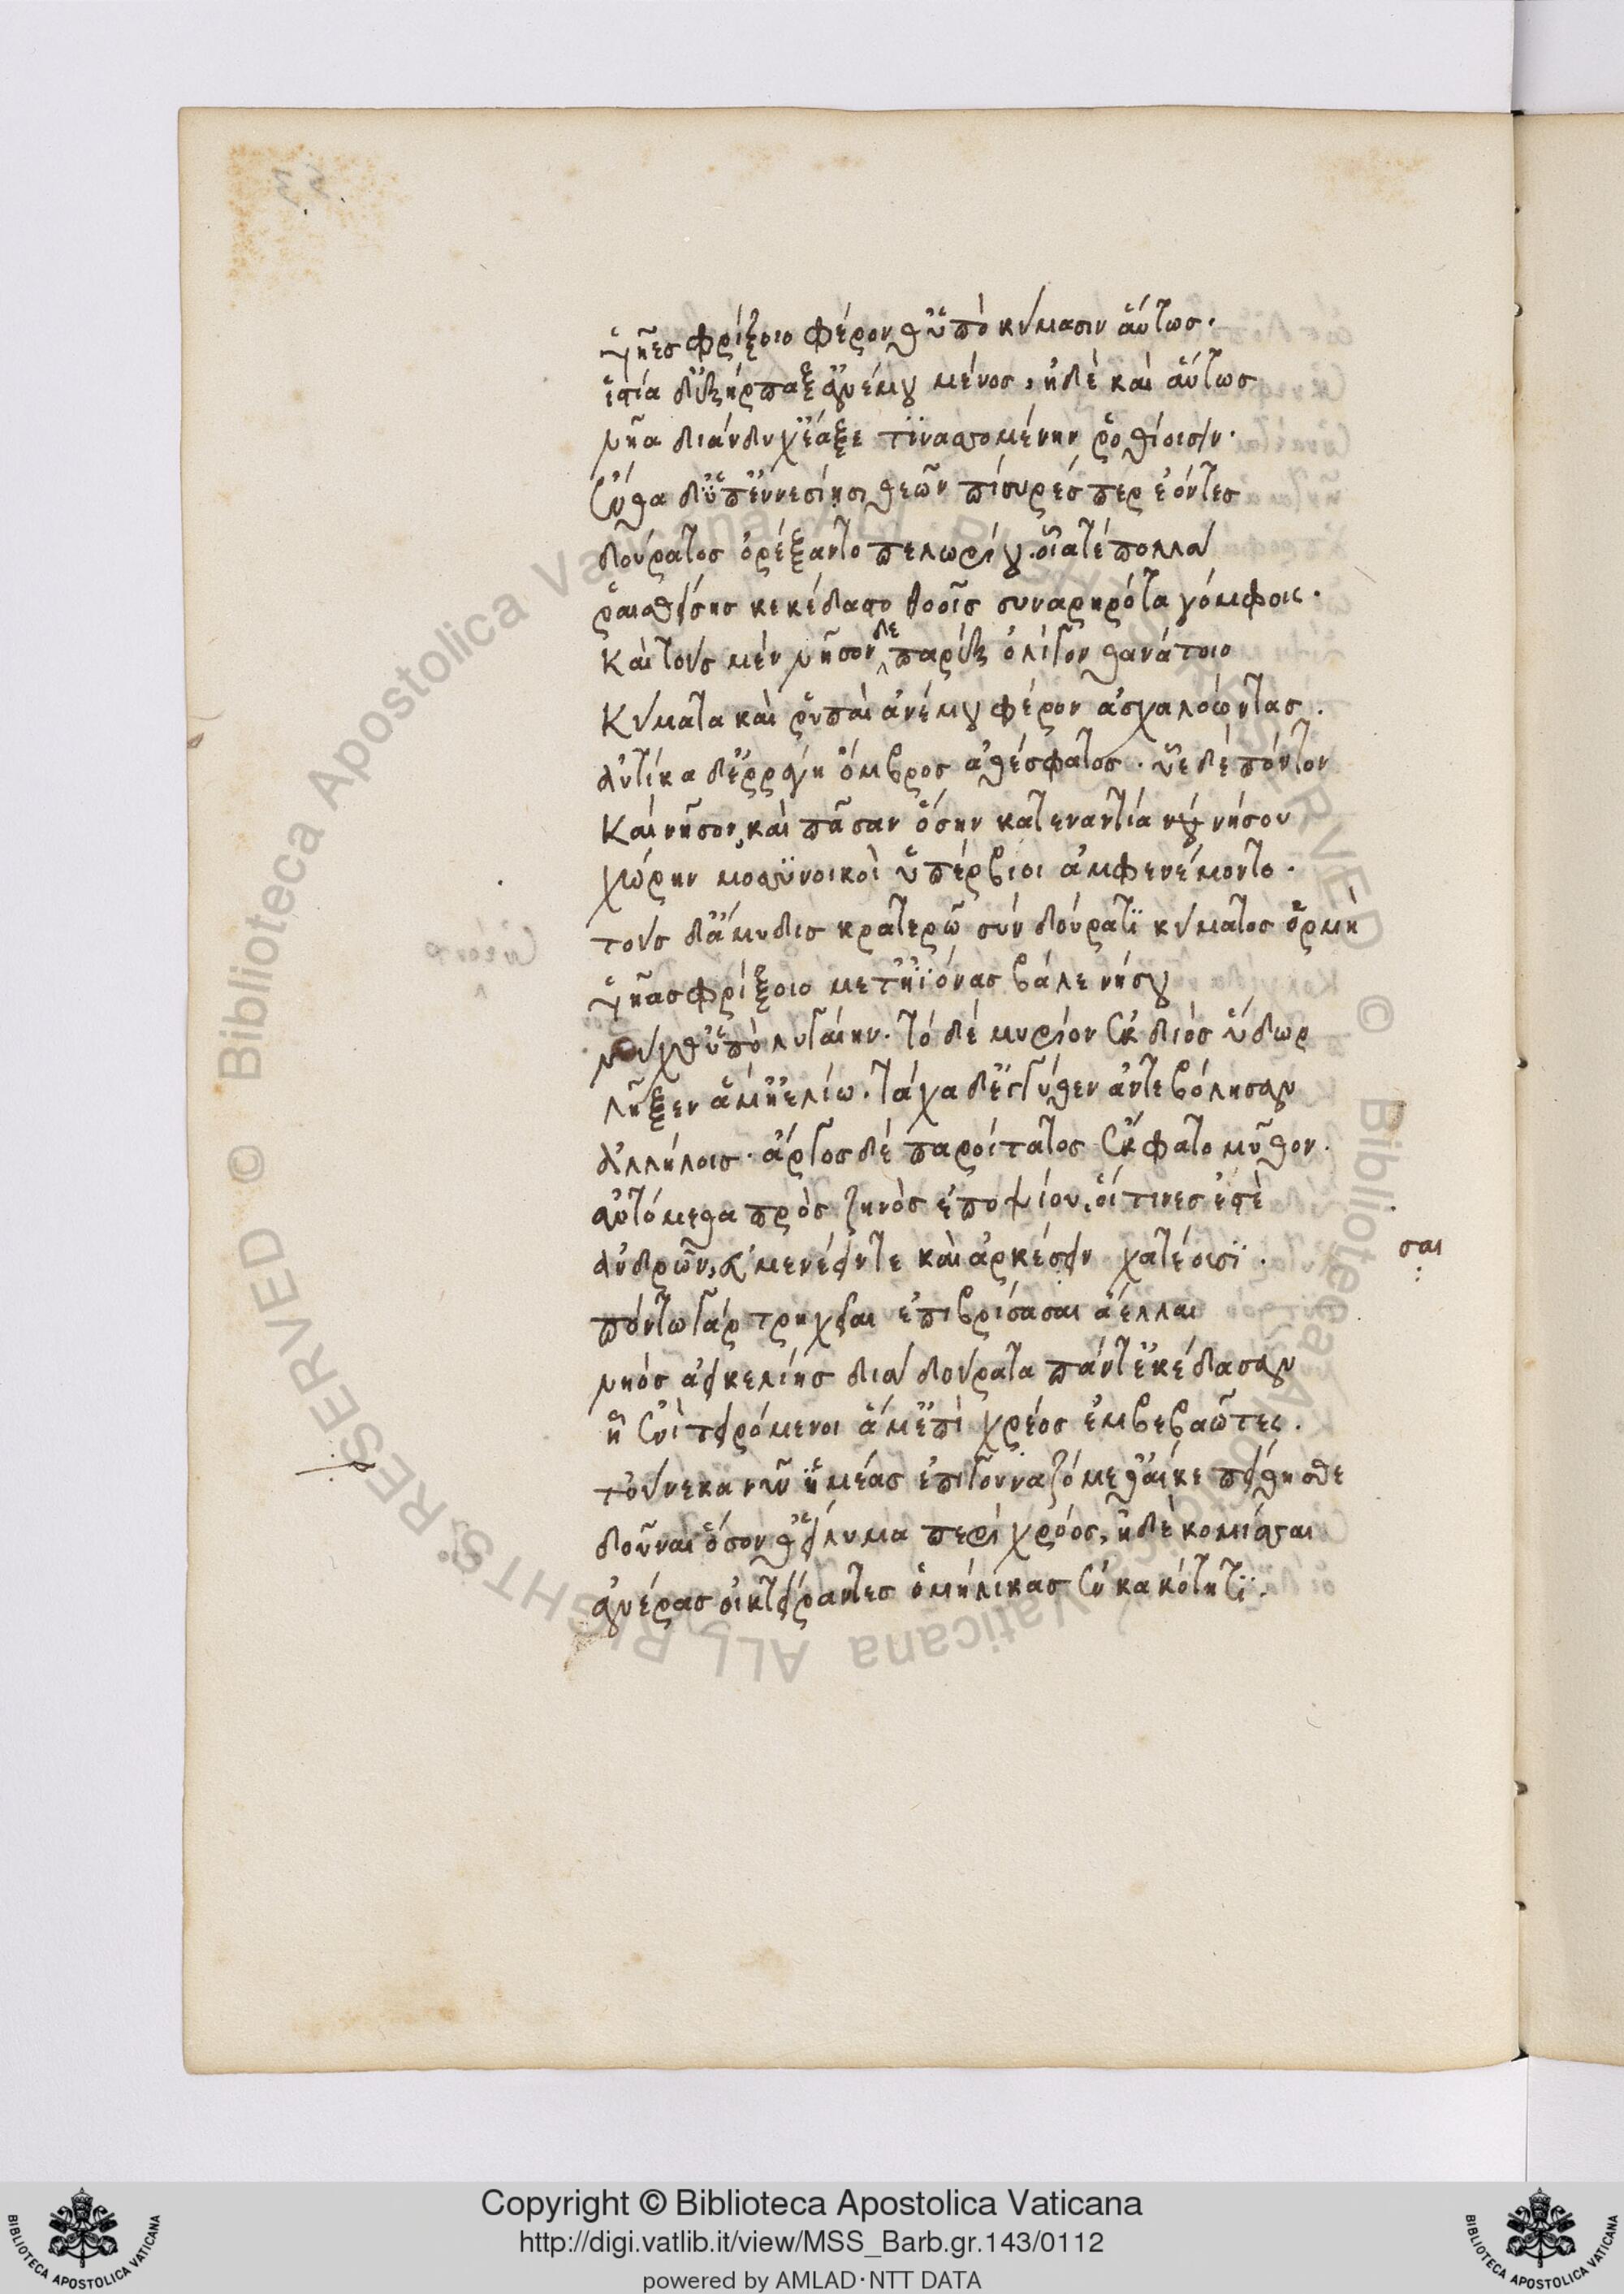 υἱῆες φρίξοιο φέρονθ' ὑπὸ κύμασιν αὔτως.
ἱστία δ' ἐξήρπαξ' ἀνέμου μένος, ἠδὲ καὶ αὔτως
νῆα διάνδιχ' ἔαξε τϊνασσομένην ῥοθίοισιν.
ἔνθα δ' ὑπ' ἐννεσίῃσι θεῶν πίσυρές περ ἐόντες
δούρατος ὀρέξαντο πελωρίου. οἷά τε πολλὰ
ῥαισθείσης κεκέδαστο θοοῖς συναρηρότα γόμφοις.
καὶ τοὺς μὲν νῆσον δε παρὲξ ὀλίγον θανάτοιο
κύματα καὶ ῥιπαὶ ἀνέμου φέρον ἀσχαλόωντας.
αὐτίκα δ' ἐρράγη ὄμβρος ἀθέσφατος. ὗε δὲ πόντον
καὶ νῆσον, καὶ πᾶσαν ὅσην κατεναντία νήσου
χώρην μοσσύνοικοι ὑπέρβιοι ἀμφενέμοντο.
τοὺς δ' ἄμυδις κρατερῷ σὺν δούρατϊ κύματος ὁρμὴ
υἱῆας φρίξοιο μετ' ἠϊόνας βάλε νήσου
νύχθ' ὑπὸ λυγαίην. τὸ δὲ μυρίον ἐκ διὸς ὕδωρ
λῆξεν ἅμ' ἠελίω. τάχα δ' ἐγγύθεν ἀντεβόλησαν
ἀλλήλοις. ἄργος δὲ παροίτατος ἔκφατο μῦθον.
ἀντόμεθα πρὸς ζηνὸς ἐποψίου, οἵ τινες ἐστὲ
ἀνδρῶν, εὐμενέειν τε καὶ ἀρκέσειν χατέουσϊ.
σαι
πόντω γὰρ τρηχεῖαι ἐπιβρίσασαι ἄελλαι
νηὸς ἀεικελίης διὰ δούρατα πάντ' ἐκέδασσαν
ᾗ ἔνι τειρόμενοι ἅμ' ἐπὶ χρέος ἐμβεβαῶτες.
τούνεκα νῦν ἡμέας ἐπιγουναζόμεθ' αἴκε πείθησθε
δοῦναι ὅσον θ' εἴλυμα περὶ χροὸς, ἠδὲ κομίσσαι
ἀνέρας οἰκτείραντες ὁμήλικας ἐν κακότητϊ.
Copyright © Biblioteca Apostolica Vaticana
http://digi.vatlib.it/view/MSS_Barb.gr.143/0112
powered by AMLAD·NTT DATA